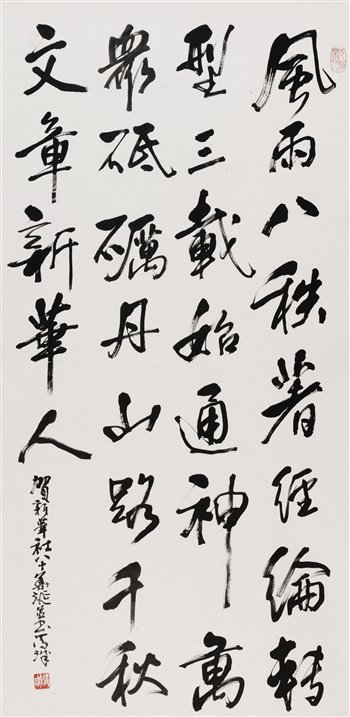 風雨八秩著經綸轉
型三載始通神萬
眾砥礪丹山路千秋
文章新華人
賀新華社八十華誕